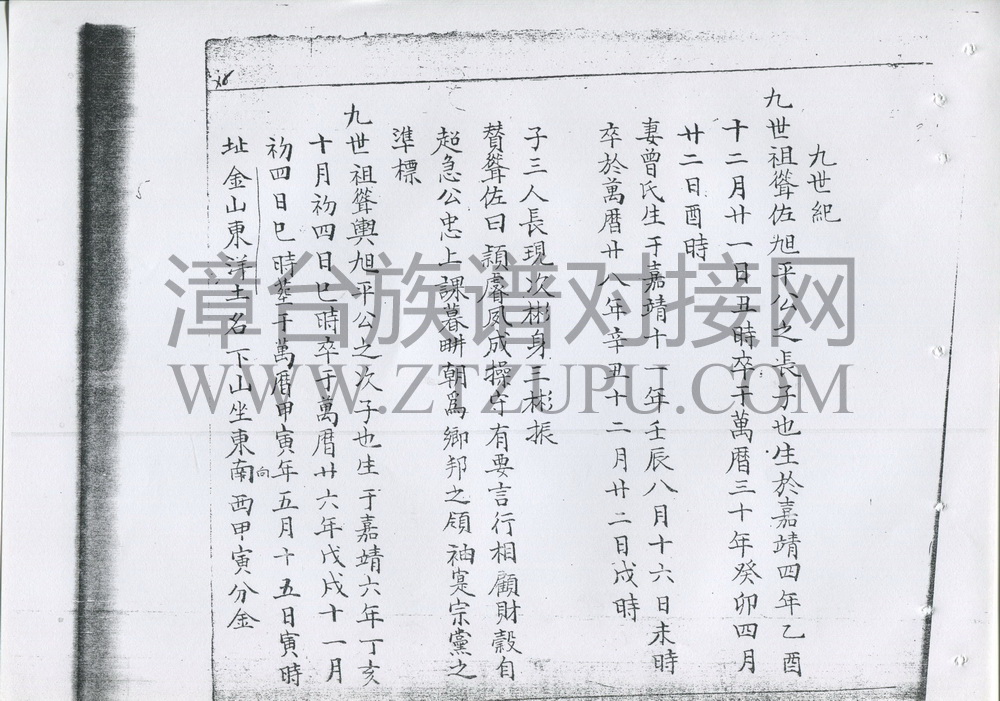 九世紀
九世祖聳佐旭平公之長子也生於嘉靖四年乙酉
十二月廿一日丑時卒于萬曆三十年癸卯四月
廿二日酉時
妻曾氏生于嘉靖十一年壬辰八月十六日未時
卒於萬曆廿八年辛丑十二月廿二日戌時
子三人長現次彬身三彬振
賛聳佐曰頴睿夙成操守有要言行相顧財穀自
超急公忠上課暮畊朝爲鄉邦之領袖寔宗黨之
準標
九世祖聳輿旭平公之次子也生于嘉靖六年丁亥
十月初四日巳時卒于萬曆廿六年戊戌十一月
初四日巳時塟于萬曆甲寅年五月十五日寅時
址金山東洋土名下山坐東南向西甲寅分金
漳台族谱对接网
WWW.ZTZUPU.COM